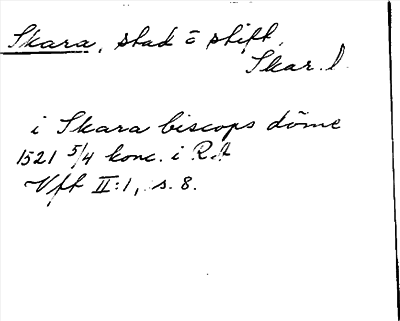 Skara, stad o stift,
Skar. l
i Skara biscops döme
1521 5/4 konc. i RA
Vft II:1, s. 8.